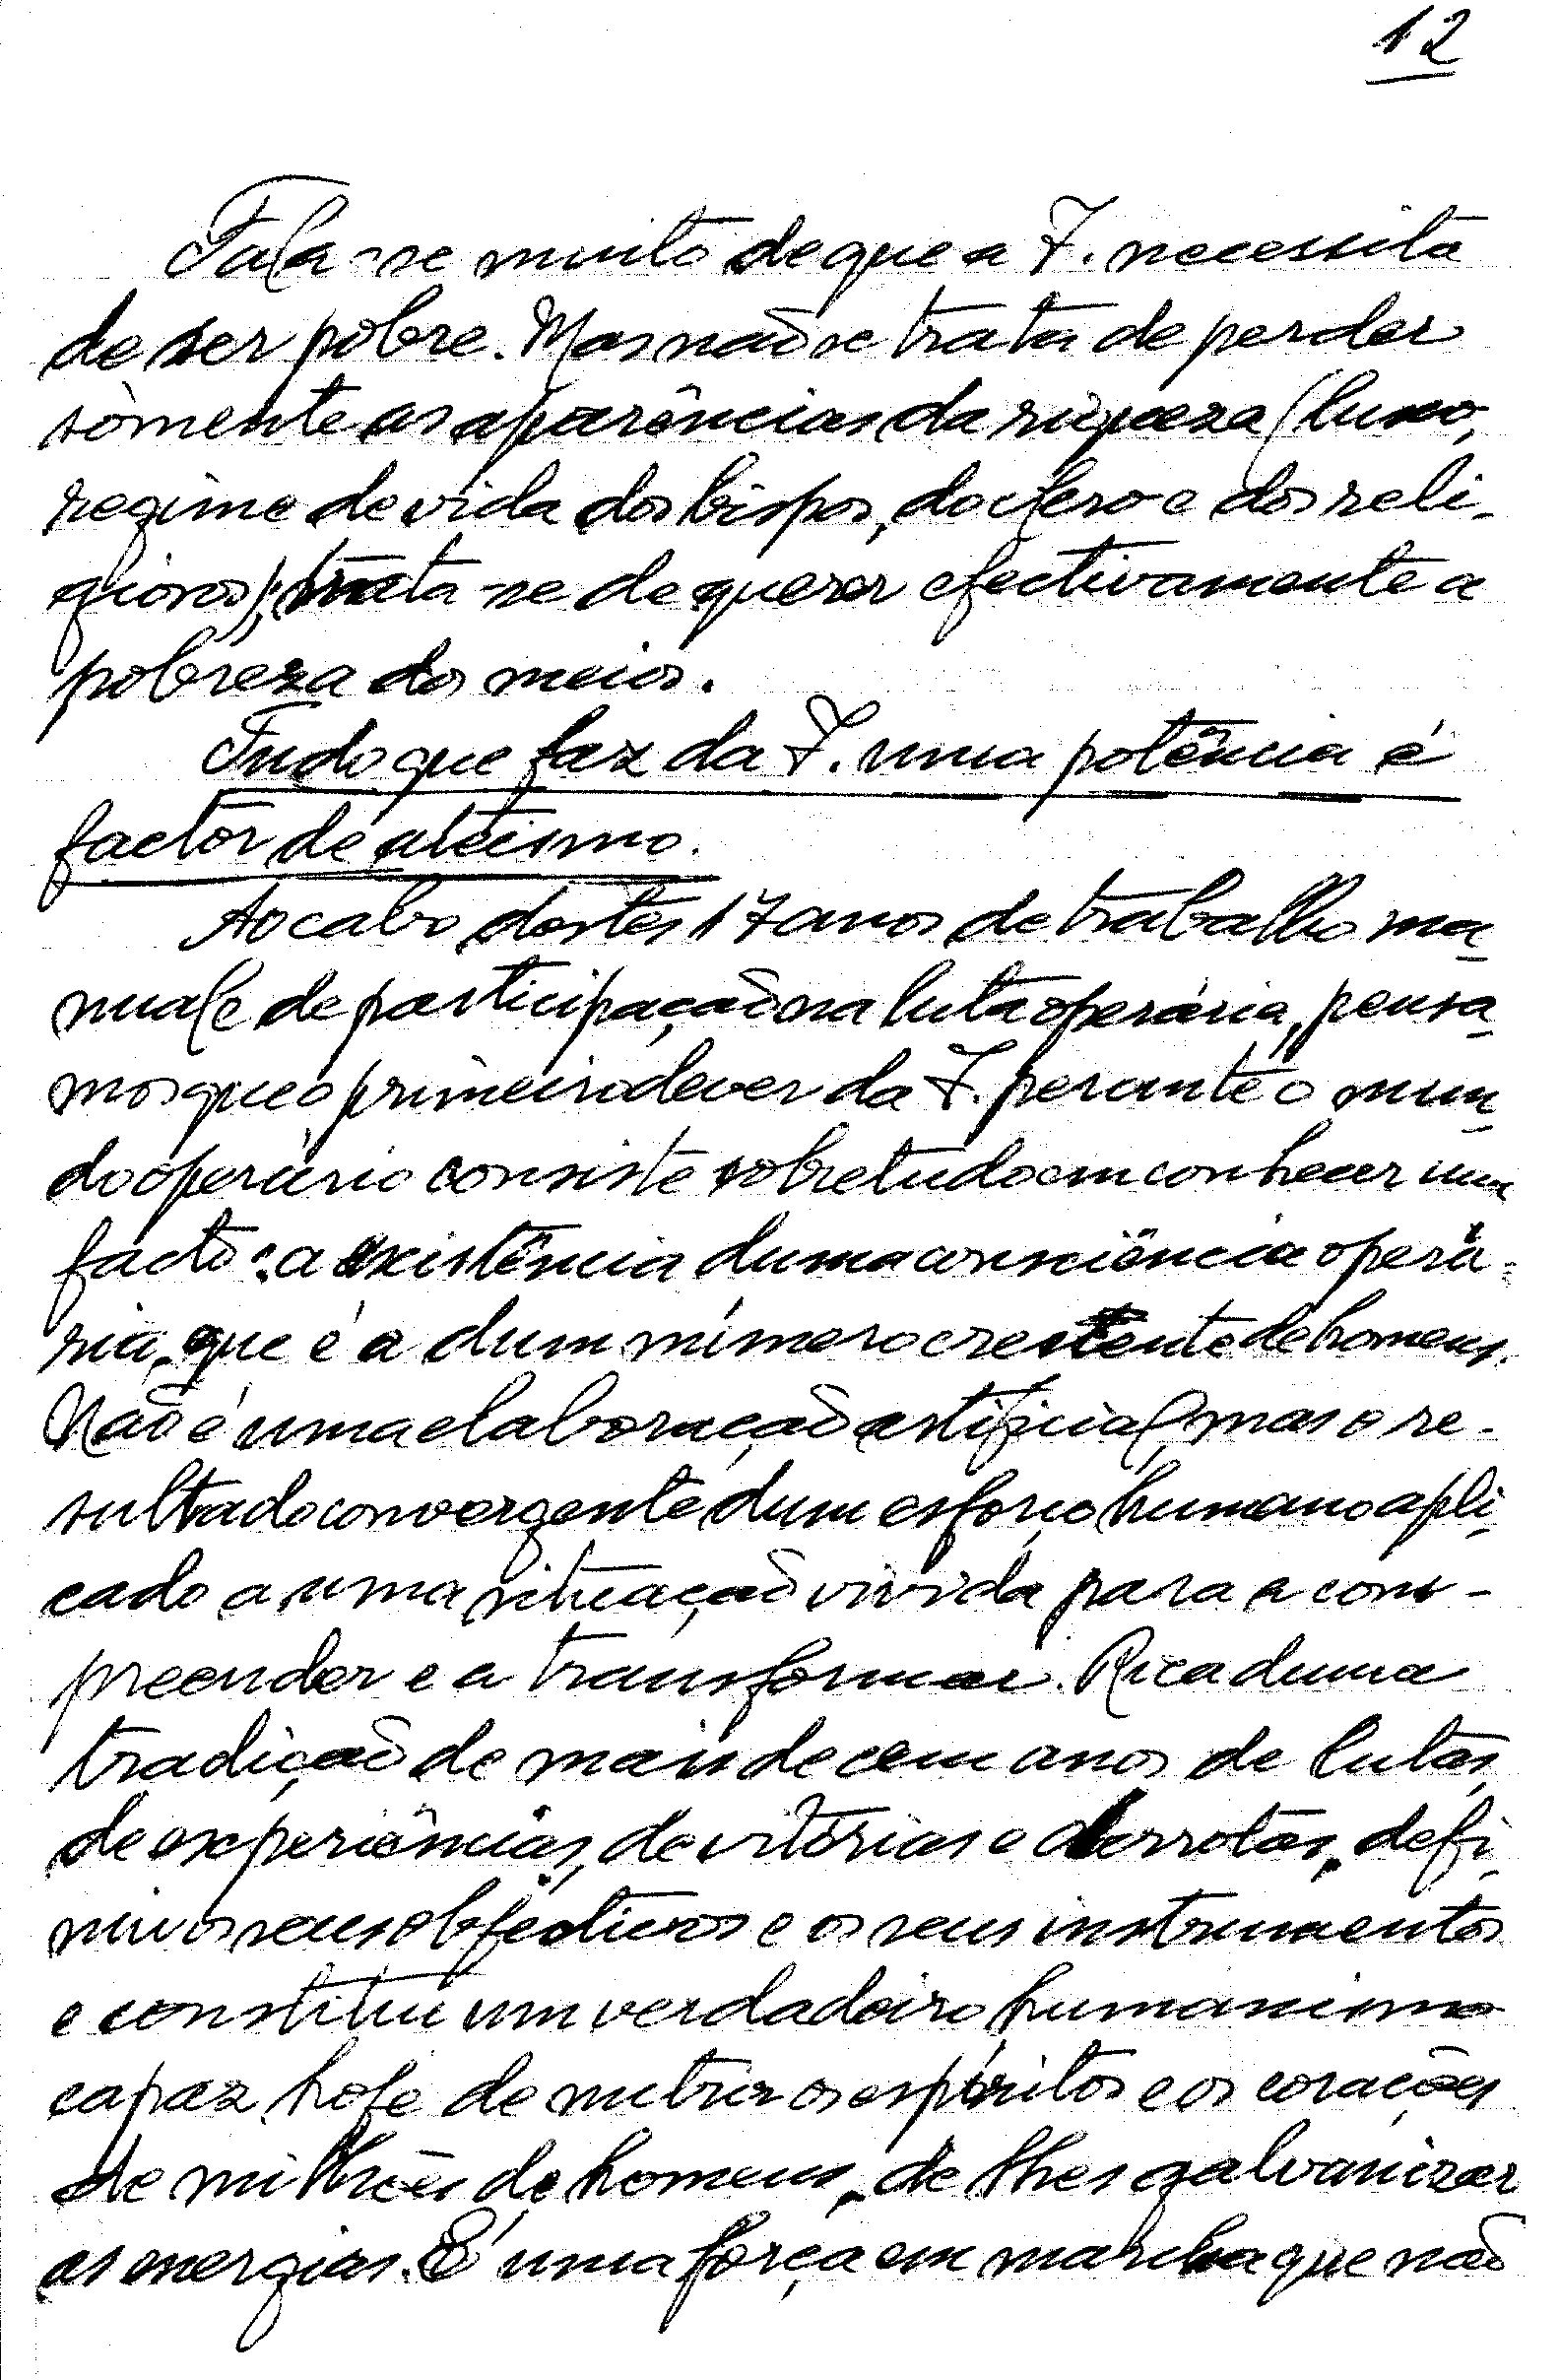 12
Fala-se muito de que a I. necessita
de ser pobre. Mas não se trata de perder
sòmente as aparências da riqueza (luxo,
regime de vida dos bispos, do clero e dos reli-
giosos); trata-se de querer efectivamente a
pobreza dos meios.
Tudo que faz da I. uma potência é
factor de ateismo.
Ao cabo destes 17 anos de trabalho ma-
nual e de participação na luta operária, pensa-
mos que o primeiro dever da I. perante o mun-
do operário consiste sobretudo em conhecer um
facto: a existência duma consciência operá-
ria, que é a dum número crescente de homens.
Não é uma elaboração artificial, mas o re-
sultado convergente dum esforço humano apli-
cado a uma situação vivida para a com-
preender e a transformar. Rica duma
tradição de mais de cem anos de lutas,
de experiências, de vitórias e derrotas, defi-
niu os seus objectivos e os seus instrumentos
e constitui um verdadeiro humanismo
capaz hoje de nutrir os espíritos e os corações
de milhões de homens, de lhes galvanizar
as energias. É uma força em marcha que não